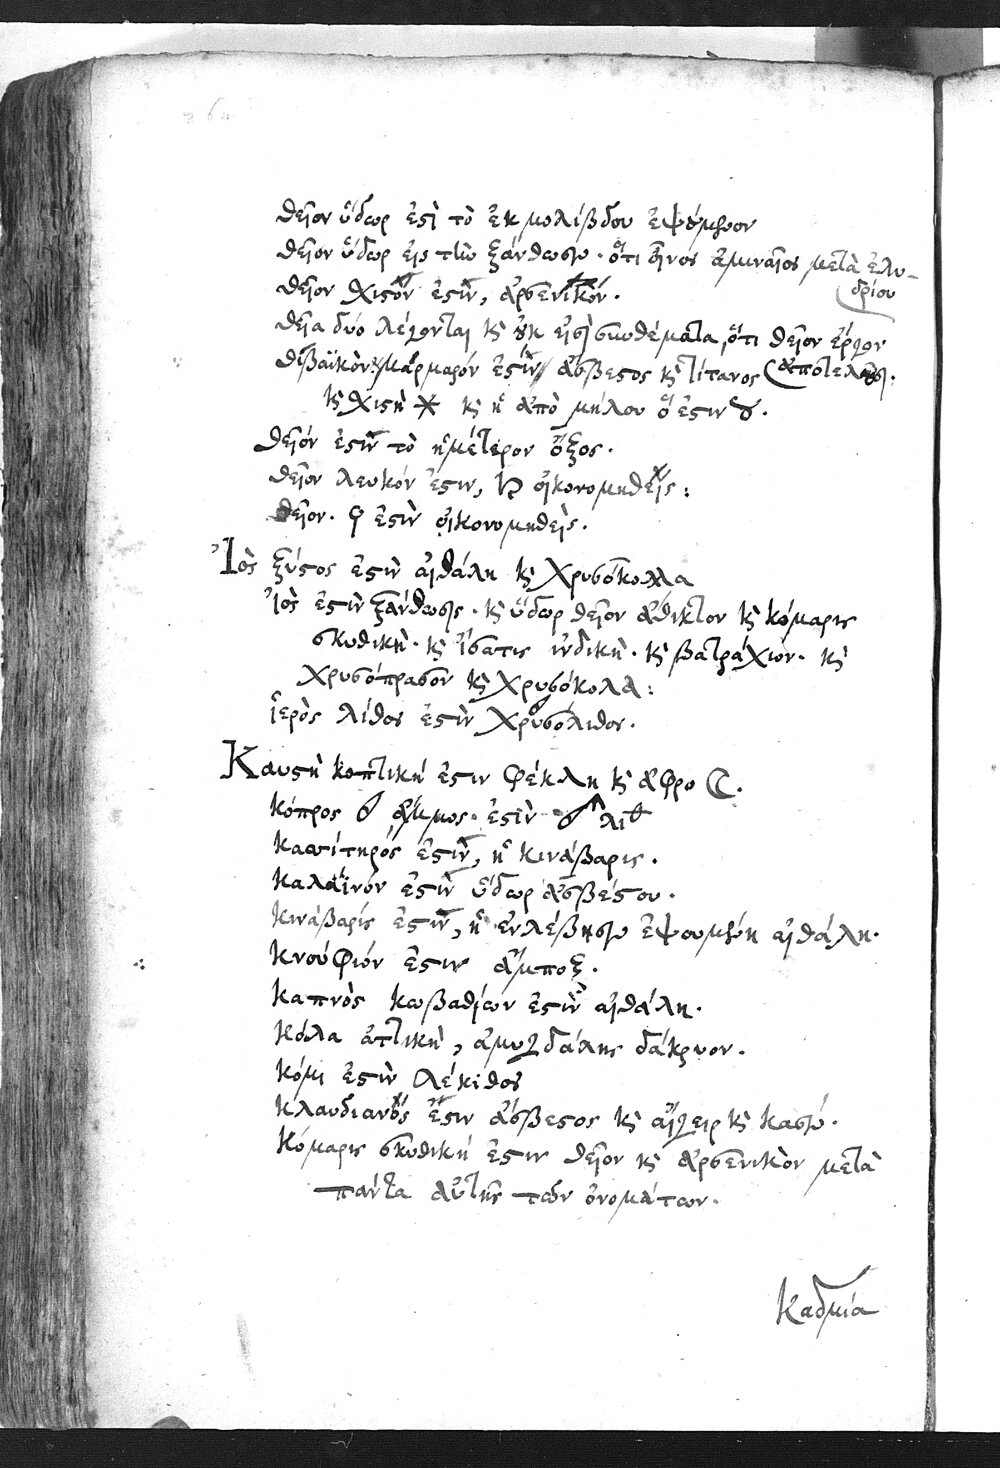 θεῖον ὕδωρ ἐστὶ τὸ ἐκ μολίβδου ἑψόμενον
θεῖον ὕδωρ εἰς τὴν ξάνθωσιν· ὅτι οἶνος ἀμιναῖος μετὰ ἐλυ-
δρίου
θεῖον χιστὸν ἐστὶν, ἀρσενικόν.
θεῖα δύο λέγονται κ οὐκ εἰσὶ συνθέματα, ὅτι θεῖον ἔργον
ἀποτελοῦσι.
θιβαϊκὸν μάρμαρόν ἐστὶν ἄσβεστος κ τίτανος
κ χιστὴ κ ἡ ἀπὸ μήλου ὅ ἐστιν
θεῖόν ἐστὶν τὸ ἡμέτερον ὄξος.
θεῖον λευκόν ἐστιν, οἰκονομηθεὶς:
θεῖον. ἐστὶν οἰκονομηθεὶς.
Ἰὸς ξύστος ἐστὶν αἰθάλη κ χρυσόκολλα
ἰὸς ἐστὶν ξάνθωσις· κ ὕδωρ θεῖον ἄθικτον κ κόμαρις
σκυθικὴ· κ ἴσατις ἰνδικὴ· κ βατράχιον· κ
χρυσόπρασον κ χρυσόκολα:
ἱερὸς λίθος ἐστὶν χρυσόλιθος.
Καυστὴ κοπτική ἐστιν φέκλη κ ἀφρο
κόπρος ἄκμος· ἐστὶν
κασίτηρός ἐστὶν, ἡ κινάβαρις.
καλαϊνόν ἐστὶν ὕδωρ ἀσβέστου.
κινάβαρίς ἐστὶν, ἡ ἐν λέβησιν ἑψουμένη αἰθάλη.
κνούφιόν ἐστιν ἄμποξ.
καπνὸς κωβαθίων ἐστὶν αἰθάλη.
κόλα ἀττικὴ, ἀμυγδάλης δάκρυον.
κόμι ἐστὶν λέκιθος
κλαυδιανός ἐστιν ἄσβεστος κ
κόμαρις σκυθική ἐστιν θεῖον κ ἀρσενικὸν μετὰ
πάντα αὐτῆς τῶν ὀνομάτων.
καδμία